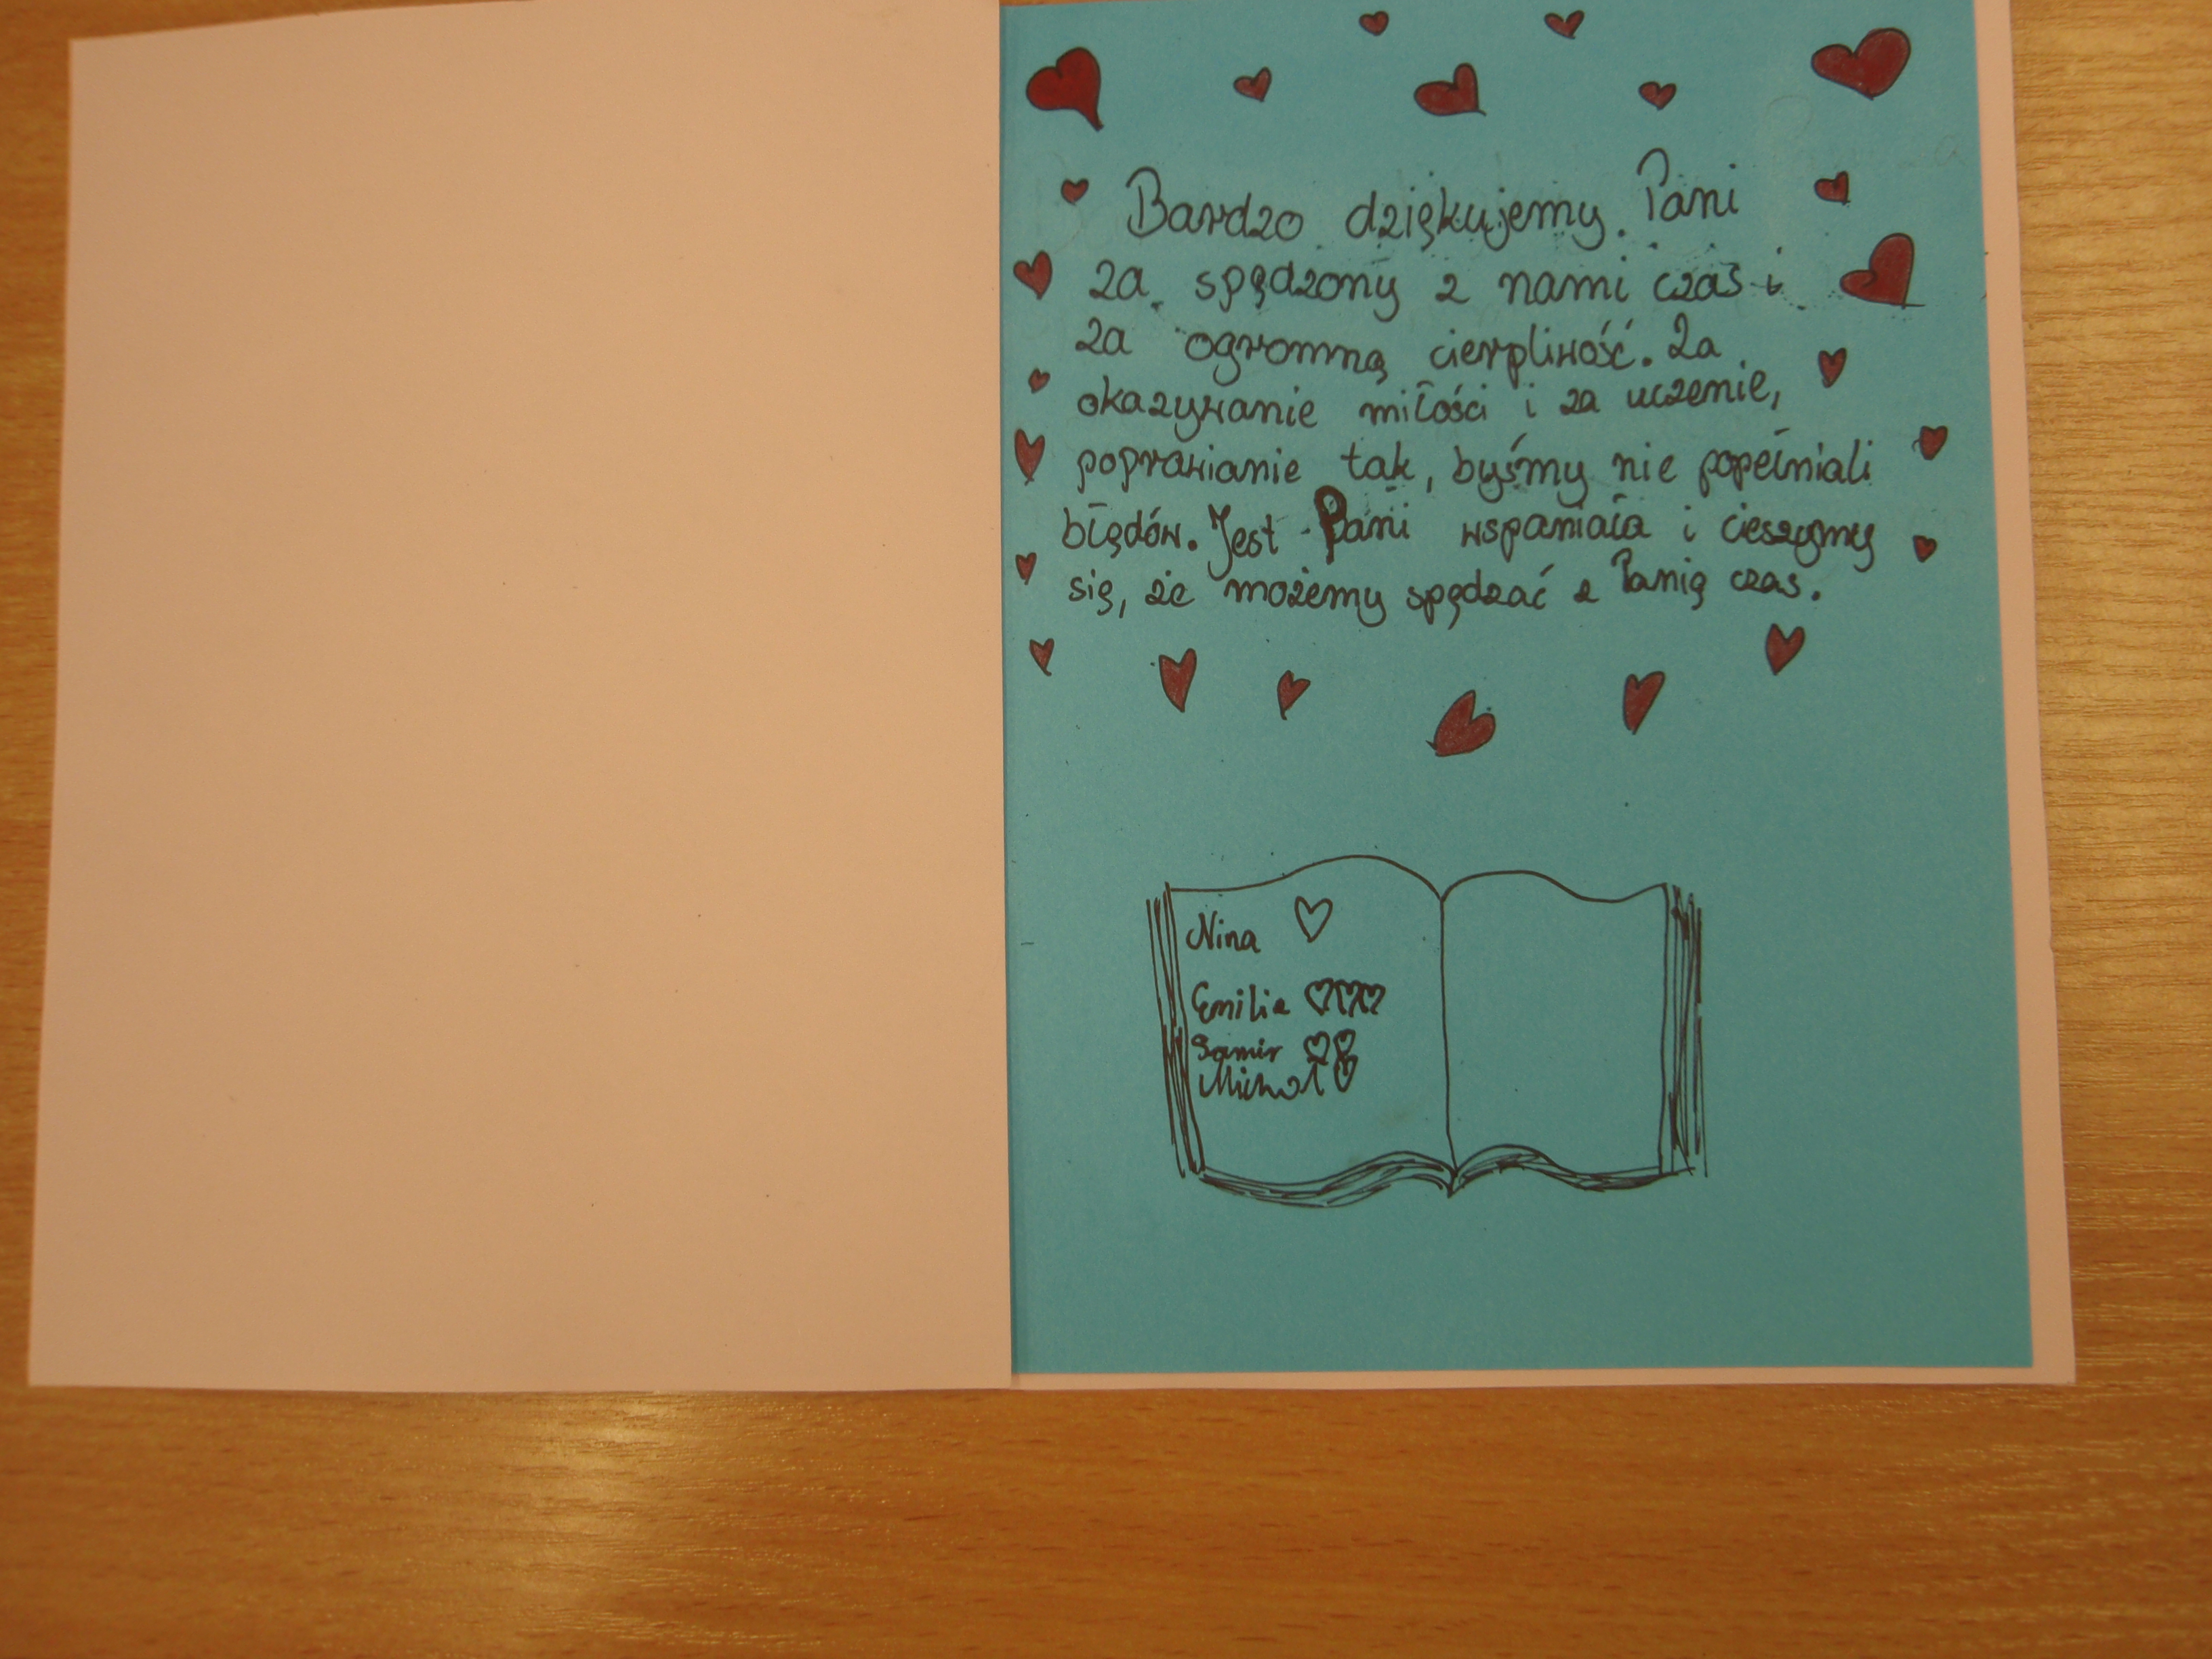 Bardzo dziękujemy Pani
za spędzony z nami czas i
za ogromną cierpliwość. Za
okazywanie miłości i za uczenie,
poprawianie tak, byśmy nie popełniali
błędów. Jest Pani wspaniała i cieszymy
się, że możemy spędzać z Panią czas.
Nina
Emilia
Samir
Michał